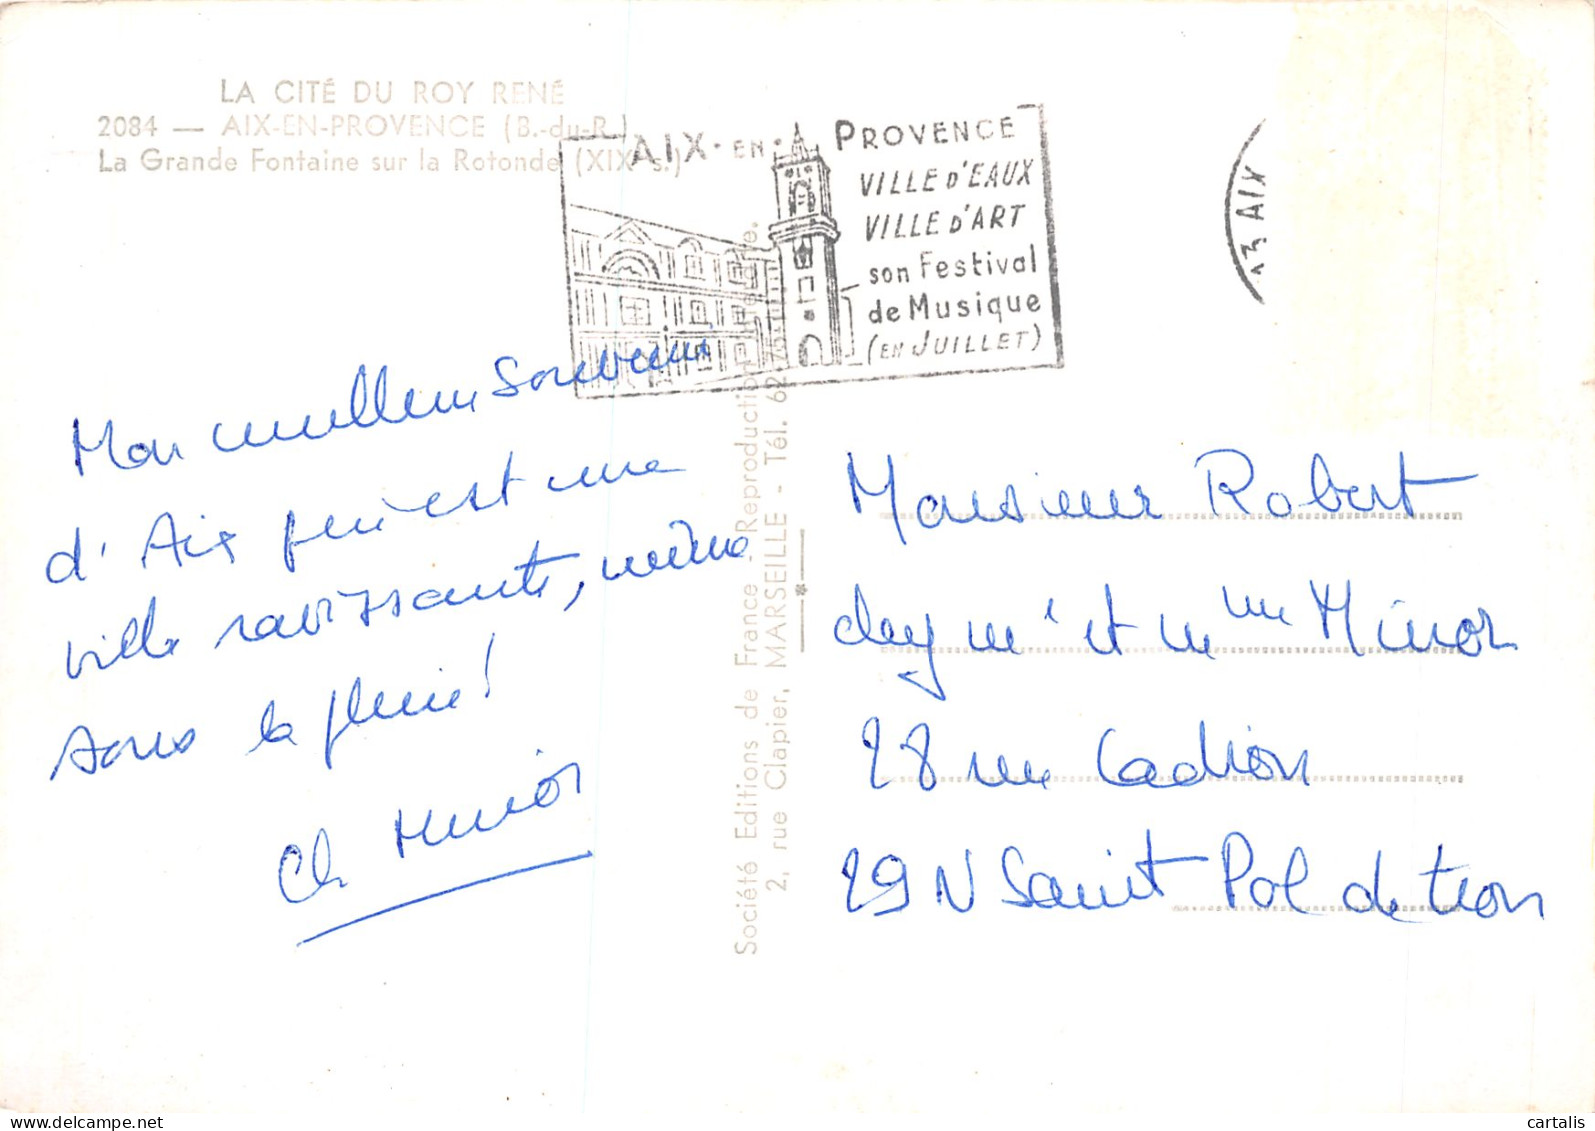 LA CITÉ DU ROY RENÉ
2084 — AIX-EN-PROVENCE (B.-du-R.)
La Grande Fontaine sur la Rotonde (XIXe s.)
AIX · EN · PROVENCE
VILLE D'EAUX
VILLE D'ART
son Festival
de Musique
(EN JUILLET)
13 AIX
Mon meilleur Souvenir
d'Aix qui est une
ville ravissante, même
sous la pluie !
Ch Minior
Société Editions de France - Reproduction
2, rue Clapier, MARSEILLE - Tél. 62
Monsieur Robert
chez Mr et Mme Minior
28 rue Cadiou
29N Saint Pol de Léon
cartalis
cartalis